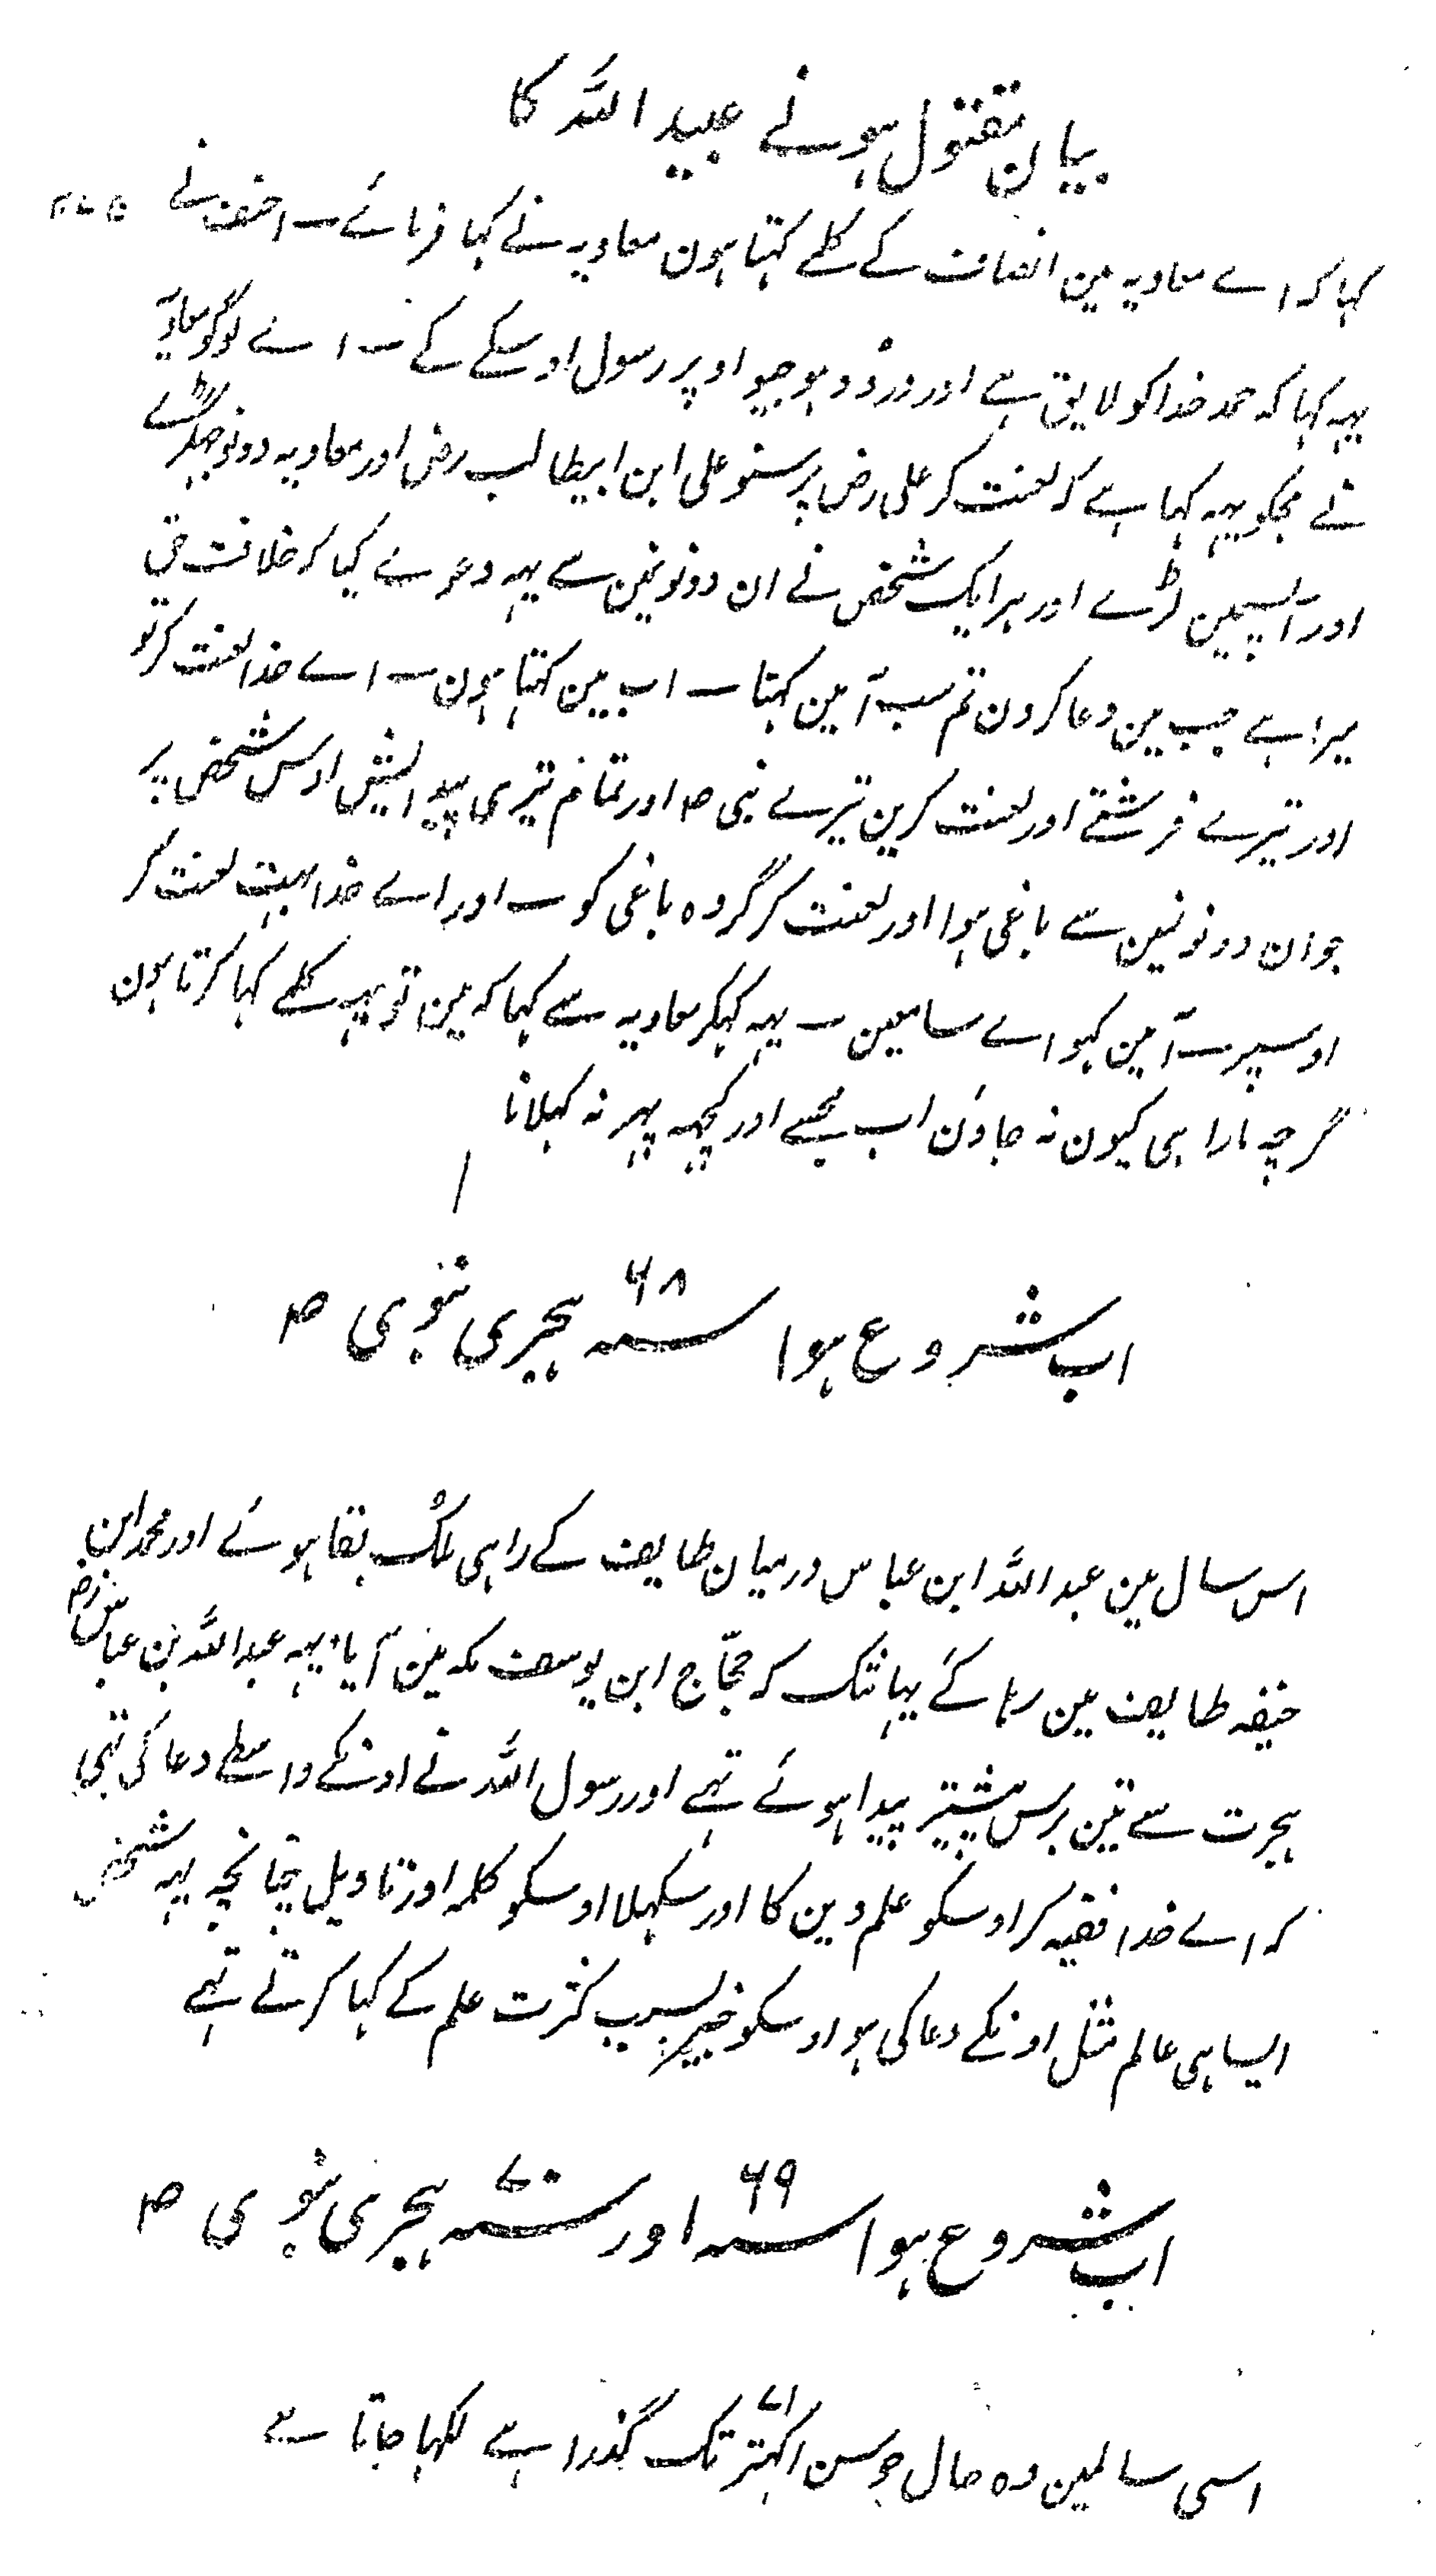 بیان مقتول ہونے عبید اللہ کا
کہا کہ اے معاویہ مین انصاف کے کلمے کہتا ہون معاویہ نے کہا فرمائے۔ احنف نے
یہہ کہا کہ حمد خدا کو لایق ہے اور درود ہوجیو اوپر رسول اوسکے کے۔ اے لوگو معاویہ
نے مجکو یہہ کہا ہے کہ لعنت کر علی رض پر سنو علی ابن ابیطالب رض اور معاویہ دونو جھگڑے
اور آپسمین لڑے اور ہر ایک شخص نے ان دونونین سے یہہ دعوے کیا کہ خلافت حق
میرا ہے جب مین دعا کرون تم سب آمین کہنا۔ اب مین کہتا ہون۔ اے خدا لعنت کر تو
اور تیرے فرشتے اور لعنت کرین تیرے نبی ص اور تمام تیری پیدایش اوس شخص پر
جو ان دونونین سے باغی ہوا اور لعنت کر گروہ باغی کو۔ اور اے خدا بہت لعنت کر
اوسپر۔ آمین کہو اے سامعین۔ یہہ کہکر معاویہ سے کہا کہ مین تو یہہ کلمے کہا کرتا ہون
گرچہ مارا ہی کیون نہ جاؤن اب مجسے اور کچہہ پہر نہ کہلانا
اب شروع ہوا سنہ ۶۸ ہجری نبوی ص
اس سال مین عبد اللہ ابن عباس درمیان طایف کے راہی ملک بقا ہوئے اور محمد ابن
حنیفہ طایف مین رہا کئے یہانتک کہ حجّاج ابن یوسف مکہ مین آیا یہہ عبد اللہ بن عباس رض
ہجرت سے تین برس پیشتر پیدا ہوئے تہے اور رسول اللہ نے اونکے واسطے دعا کی تہی
کہ اے خدا فقیہ کر اوسکو علم دین کا اور سکہلا اوسکو کلمہ اور تاویل چنانچہ یہہ شخص
ایسا ہی عالم مثل اونکے دعا کی ہو اوسکو بسبب کثرت علم کے کہا کرتے تہے
اب شروع ہوا سنہ ۶۹ اور سنہ ۷۰ ہجری نبوی ص
اسی سالمین وہ حال جو سن اکہتر ۷۱ تک گذرا ہے لکہا جاتا ہے